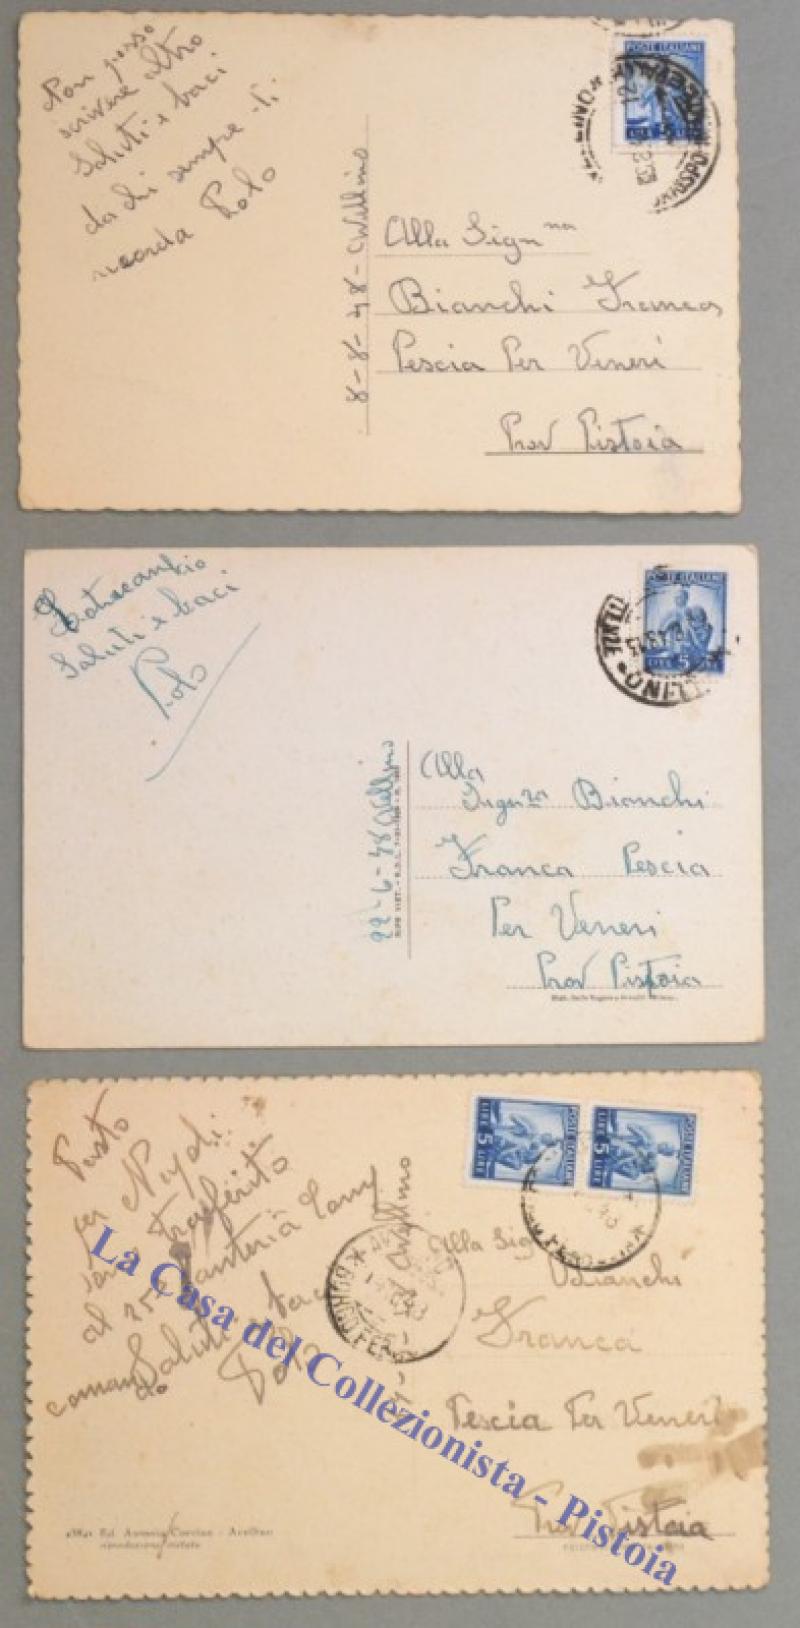 Non posso
scrivere altro
Saluti e baci
da chi sempre ti
ricorda Polo
8-8-48- Avellino
POSTE ITALIANE
Alla Sign na
Bianchi Franca
Pescia Per Veneri
Prov Pistoia
Contracambio
Saluti e baci
Polo
22-6-48 Avellino
POSTE ITALIANE
LIRE 5
Alla
Signna Bianchi
Franca Pescia
Per Veneri
Prov Pistoia
Parto
per Napoli
son trasferito
al 35 fanteria
comando
Saluti baci
Polo
Avellino
POSTE ITALIANE
LIRE 5
POSTE ITALIANE
LIRE 5
Alla Sign
Bianchi
Franca
Pescia Per Veneri
Prov Pistoia
Avellino
riproduzione vietata
La Casa del Collezionista - Pistoia